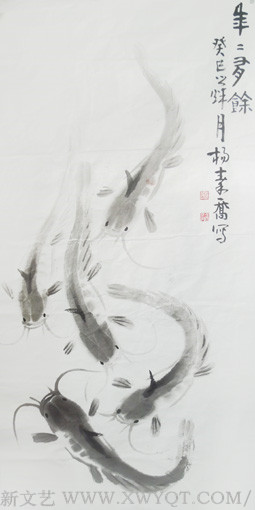 年〻有餘
癸巳之秋月杨素乔写
新文艺 WWW.XWYQT.COM/